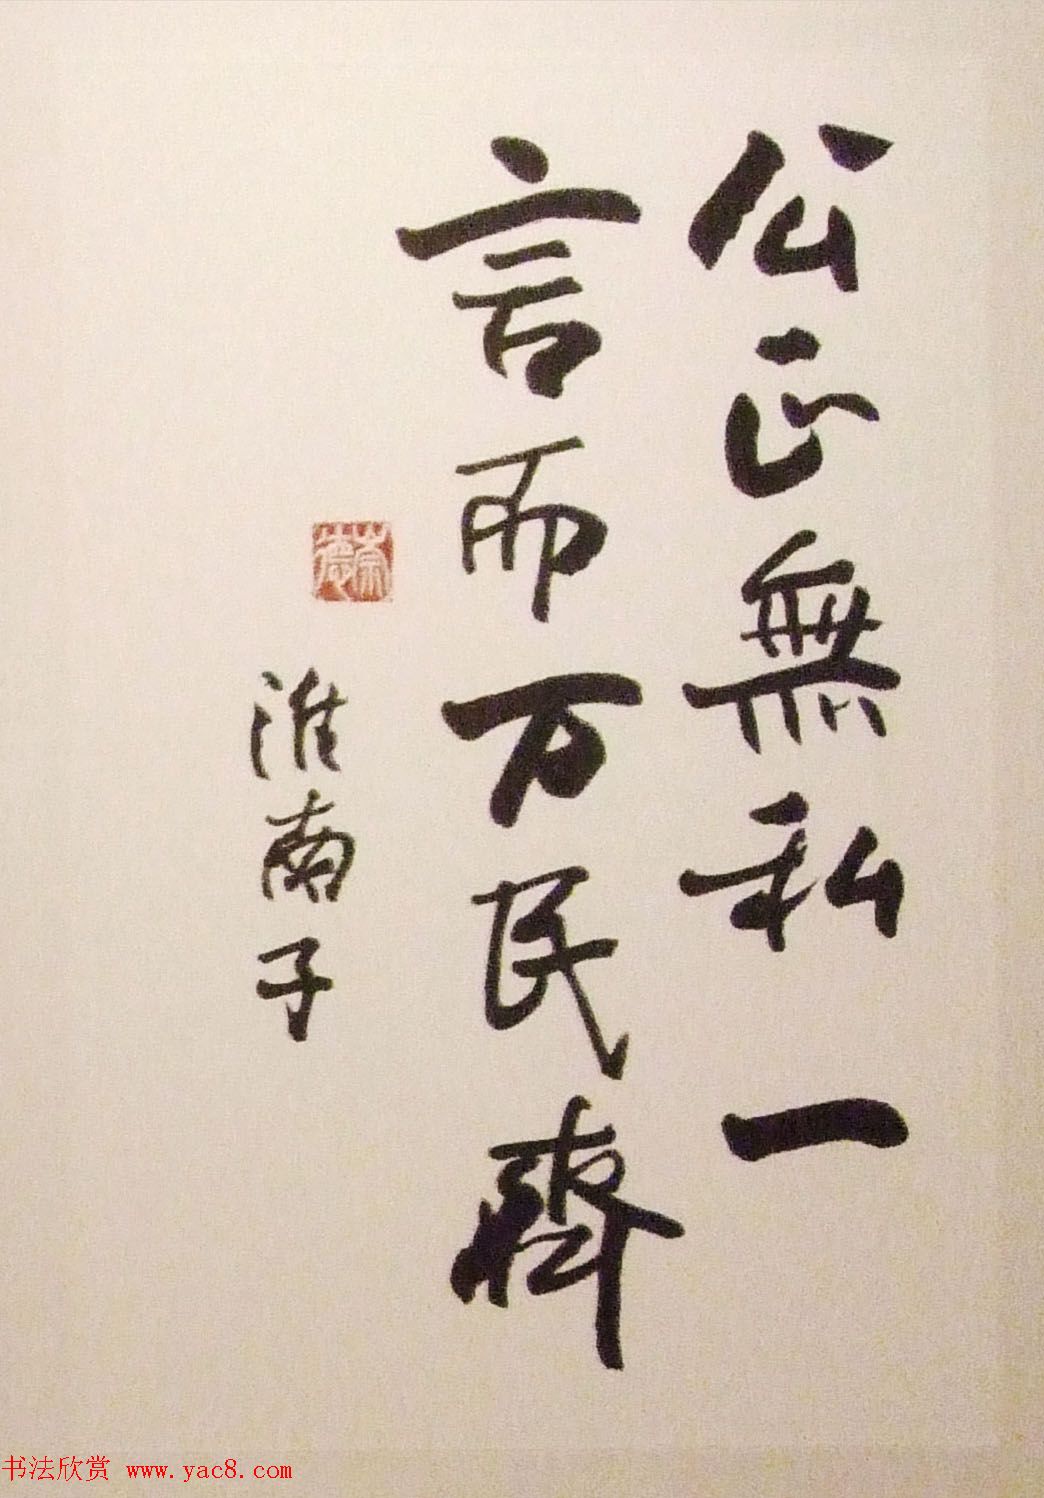 公正無私一
言而万民齊
淮南子
崇德
书法欣赏 www.yac8.com